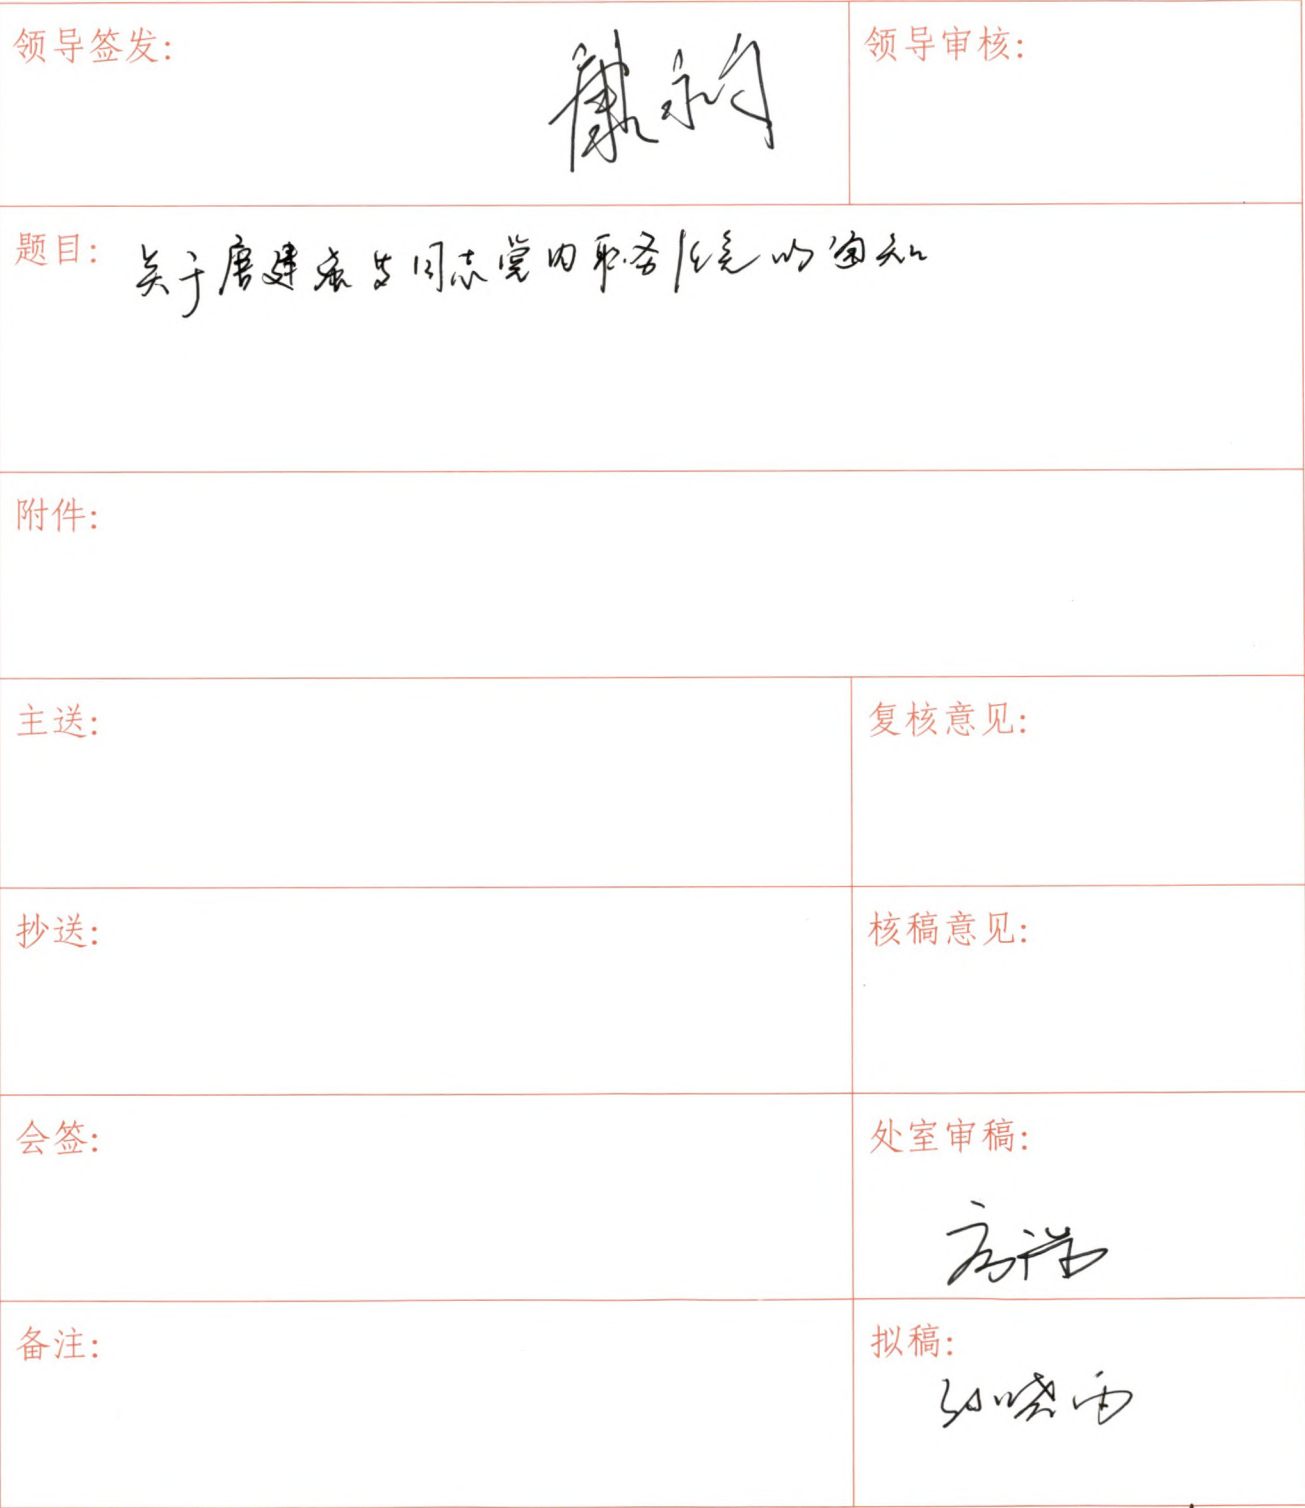 领导签发:
领导审核:
题目: 关于唐建 等同志党内职务任免的通知
附件:
主送:
复核意见:
抄送:
核稿意见:
会签:
处室审稿:
备注:
拟稿:
孙晓雨